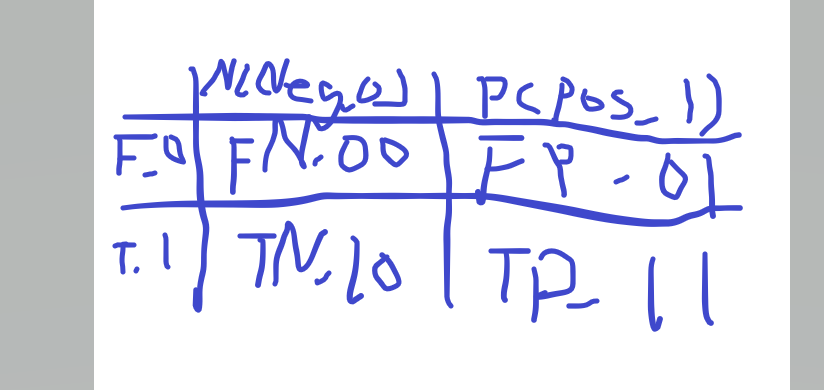 N(Neg,0) P(Pos_1)
F_0 FN.00 FP-01
T.1 TN.10 TP_11